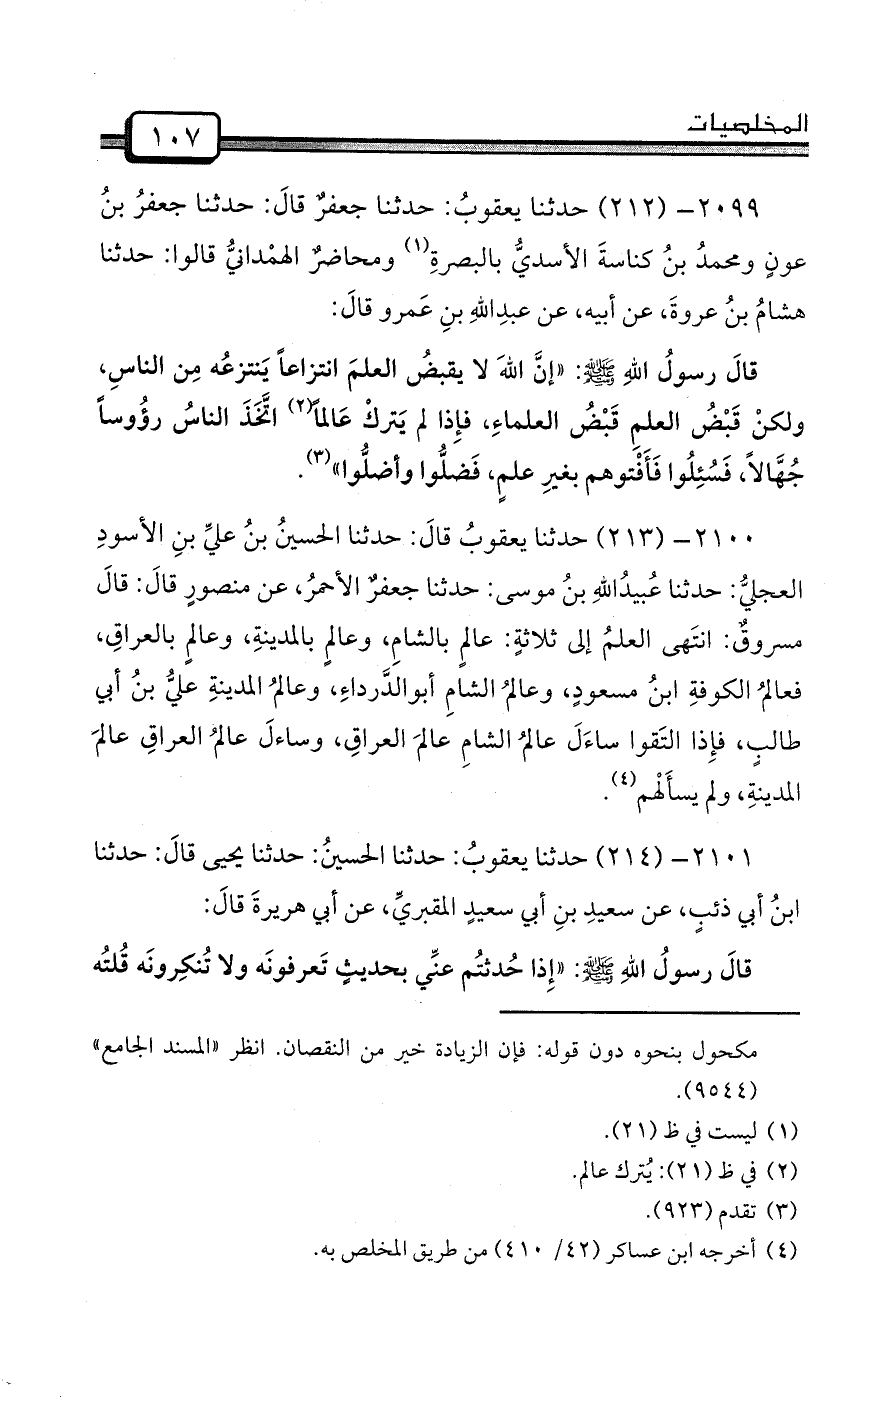 المخلصيات
١٠٧
٢٠٩٩- (٢١٢) حدثنا يعقوبُ: حدثنا جعفرٌ قالَ: حدثنا جعفرُ بنُ
عونٍ ومحمدُ بنُ كناسةَ الأسديُّ بالبصرةِ(١) ومحاضرٌ الهمْدانيُّ قالوا: حدثنا
هشامُ بنُ عروةَ، عن أبيه، عن عبدِاللهِ بنِ عَمرو قالَ:
قالَ رسولُ اللهِ ﷺ: «إنَّ اللهَ لا يقبضُ العلمَ انتزاعاً يَنتزعُه مِن الناسِ،
ولكنْ قَبْضُ العلمِ قَبْضُ العلماءِ، فإِذا لم يَتركْ عَالماً(٢) اتَّخَذَ الناسُ رؤُوساً
جُهَّالاً، فَسُئِلُوا فَأَفْتوهم بغيرِ علمٍ، فَضلُّوا وأضلُّوا»(٣).
٢١٠٠- (٢١٣) حدثنا يعقوبُ قالَ: حدثنا الحسينُ بنُ عليِّ بنِ الأسودِ
العجليُّ: حدثنا عُبيدُاللهِ بنُ موسى: حدثنا جعفرٌ الأحمرُ، عن منصورٍ قالَ: قالَ
مسروقٌ: انتَهى العلمُ إلى ثلاثةٍ: عالمٍ بالشامِ، وعالمٍ بالمدينةِ، وعالمٍ بالعراقِ،
فعالمُ الكوفةِ ابنُ مسعودٍ، وعالمُ الشامِ أبوالدَّرداءِ، وعالمُ المدينةِ عليُّ بنُ أبي
طالبٍ، فإِذا التَقوا ساءَلَ عالمُ الشامِ عالمَ العراقِ، وساءلَ عالمُ العراقِ عالمَ
المدينةِ، ولم يسأَلْهم(٤).
٢١٠١- (٢١٤) حدثنا يعقوبُ: حدثنا الحسينُ: حدثنا يحيى قالَ: حدثنا
ابنُ أبي ذئبٍ، عن سعيدِ بنِ أبي سعيدٍ المقبريِّ، عن أبي هريرةَ قالَ:
قالَ رسولُ اللهِ ﷺ: «إِذا حُدثتُم عنِّي بحديثٍ تَعرفونَه ولا تُنكِرونَه قُلتُه
مكحول بنحوه دون قوله: فإن الزيادة خير من النقصان. انظر «المسند الجامع»
(٩٥٤٤).
(١) ليست في ظ (٢١).
(٢) في ظ (٢١): يُترك عالم.
(٣) تقدم (٩٢٣).
(٤) أخرجه ابن عساكر (٤٢/ ٤١٠) من طريق المخلص به.